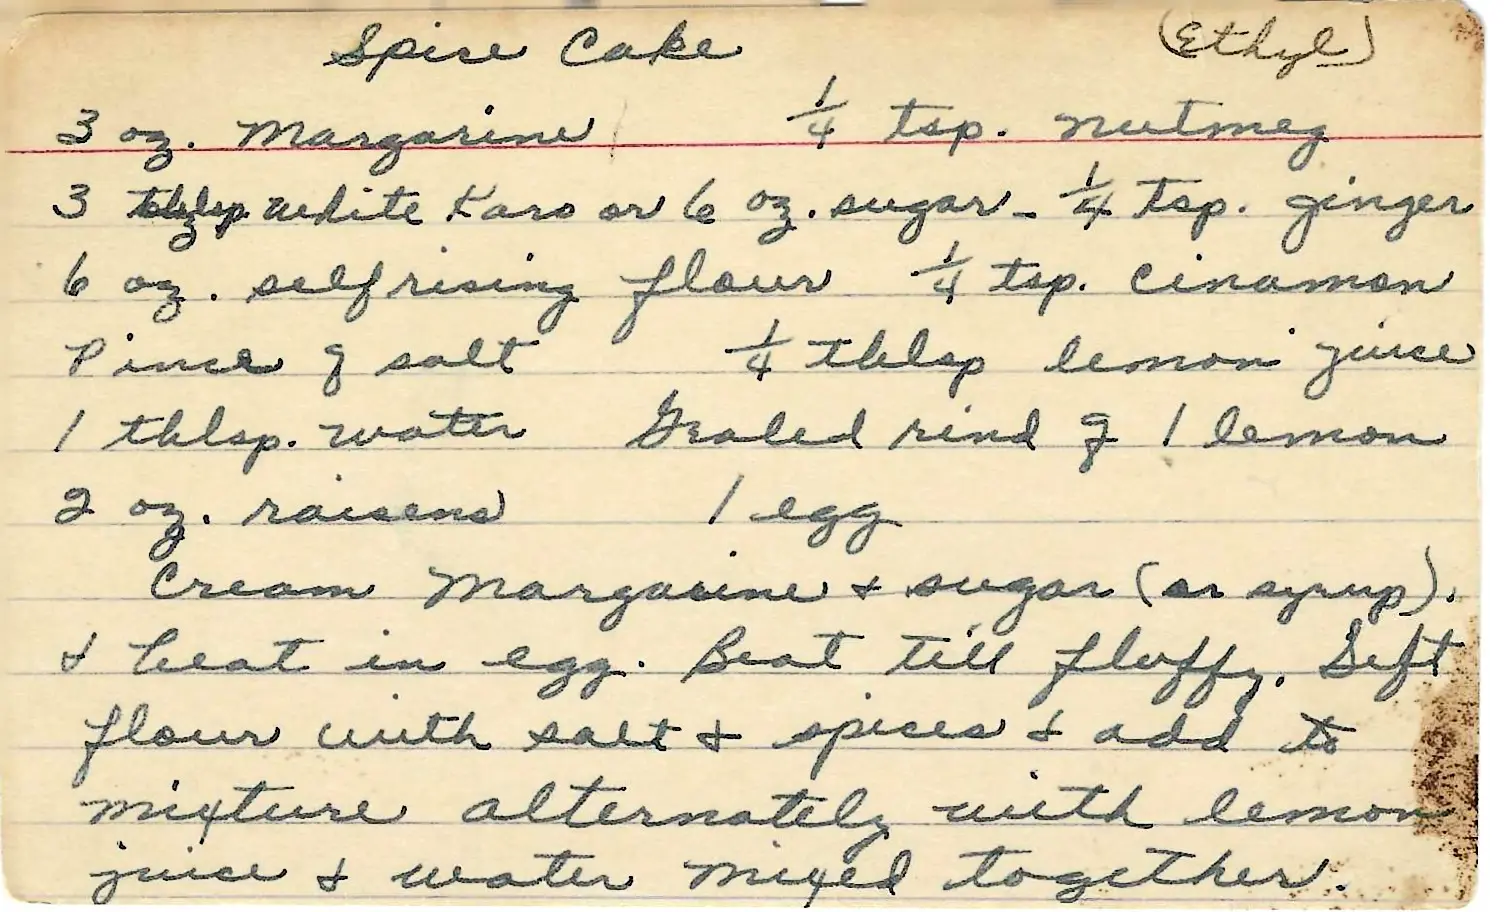 Spice Cake (Ethyl)
3 oz. Margarine 1/4 tsp. nutmeg
3 tblsp. white Karo or 6 oz. sugar - 1/4 tsp. ginger
6 oz. self rising flour 1/4 tsp. cinamon
Pince of salt 1/4 tblsp lemon juice
1 tblsp. water Grated rind of 1 lemon
2 oz. raisens 1 egg
Cream Margarine & sugar (or syrup).
& beat in egg. Beat till fluffy. Sift
flour with salt & spices & add to
mixture alternately with lemon
juice & water mixed together.